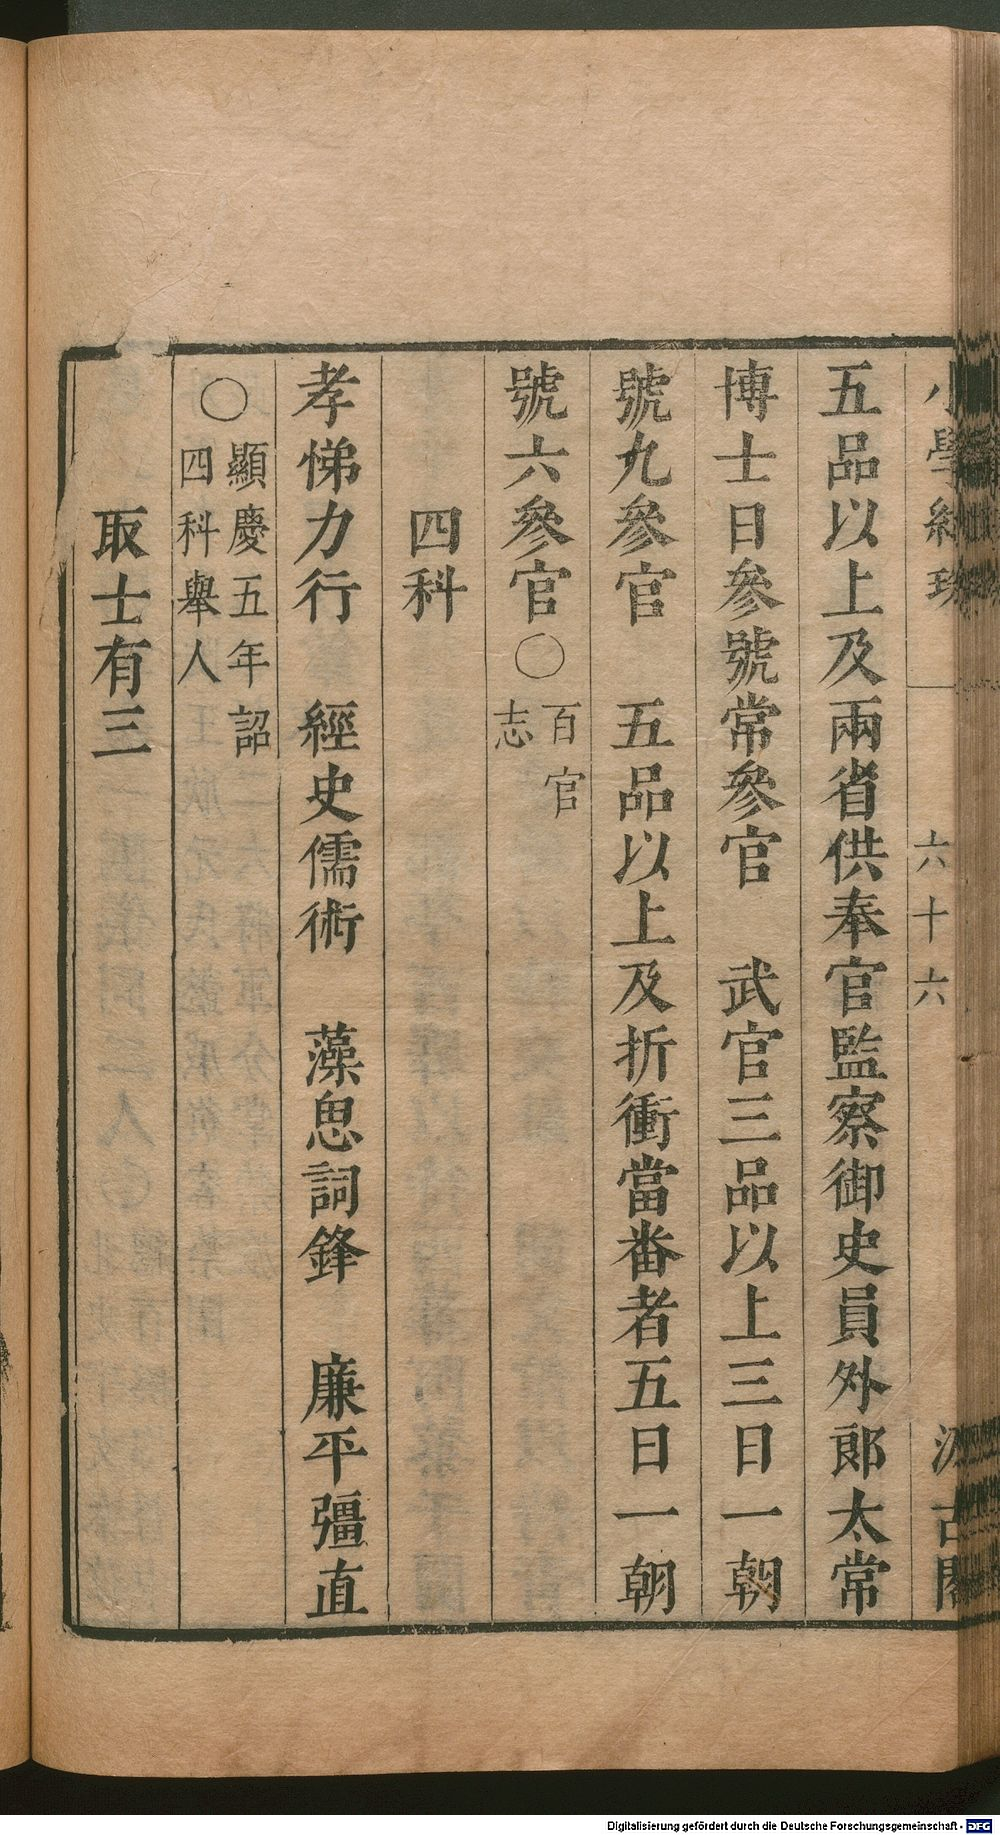 小學紺珠 六十六 汲古閣
五品以上及兩省供奉官監察御史員外郎太常
博士日參號常參官 武官三品以上三日一朝
號九參官 五品以上及折衝當番者五日一朝
號六參官〇百官志
四科
孝悌力行 經史儒術 藻思詞鋒 廉平彊直
〇顯慶五年詔四科舉人
取士有三
Digitalisierung gefördert durch die Deutsche Forschungsgemeinschaft - DFG